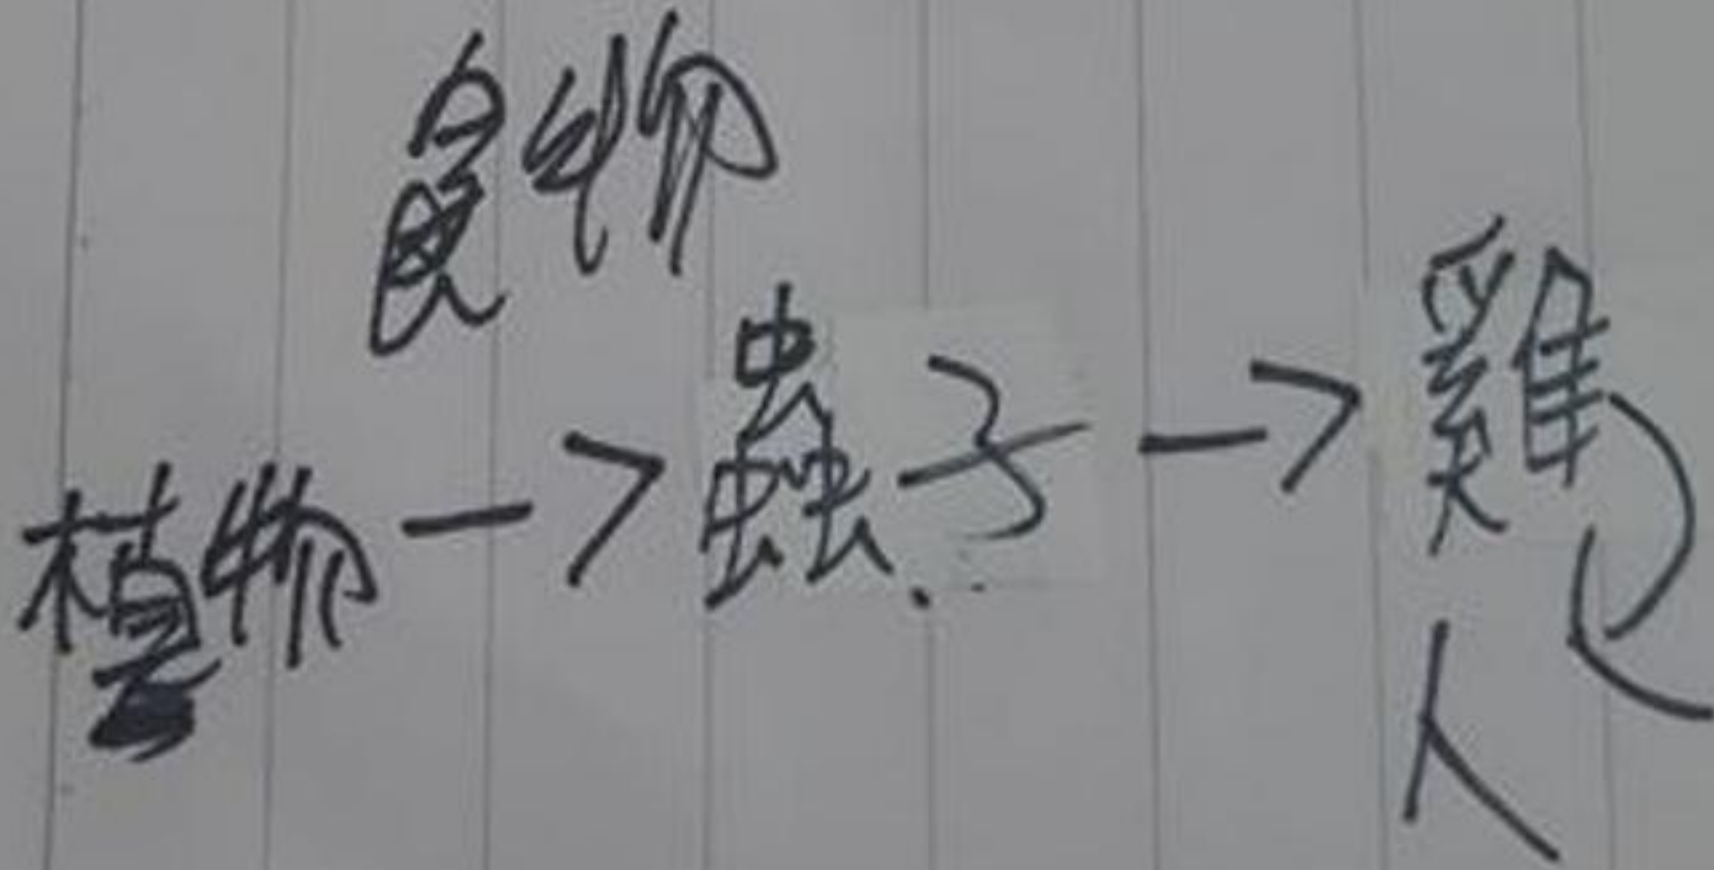 食物
植物—>蟲子—>雞
人